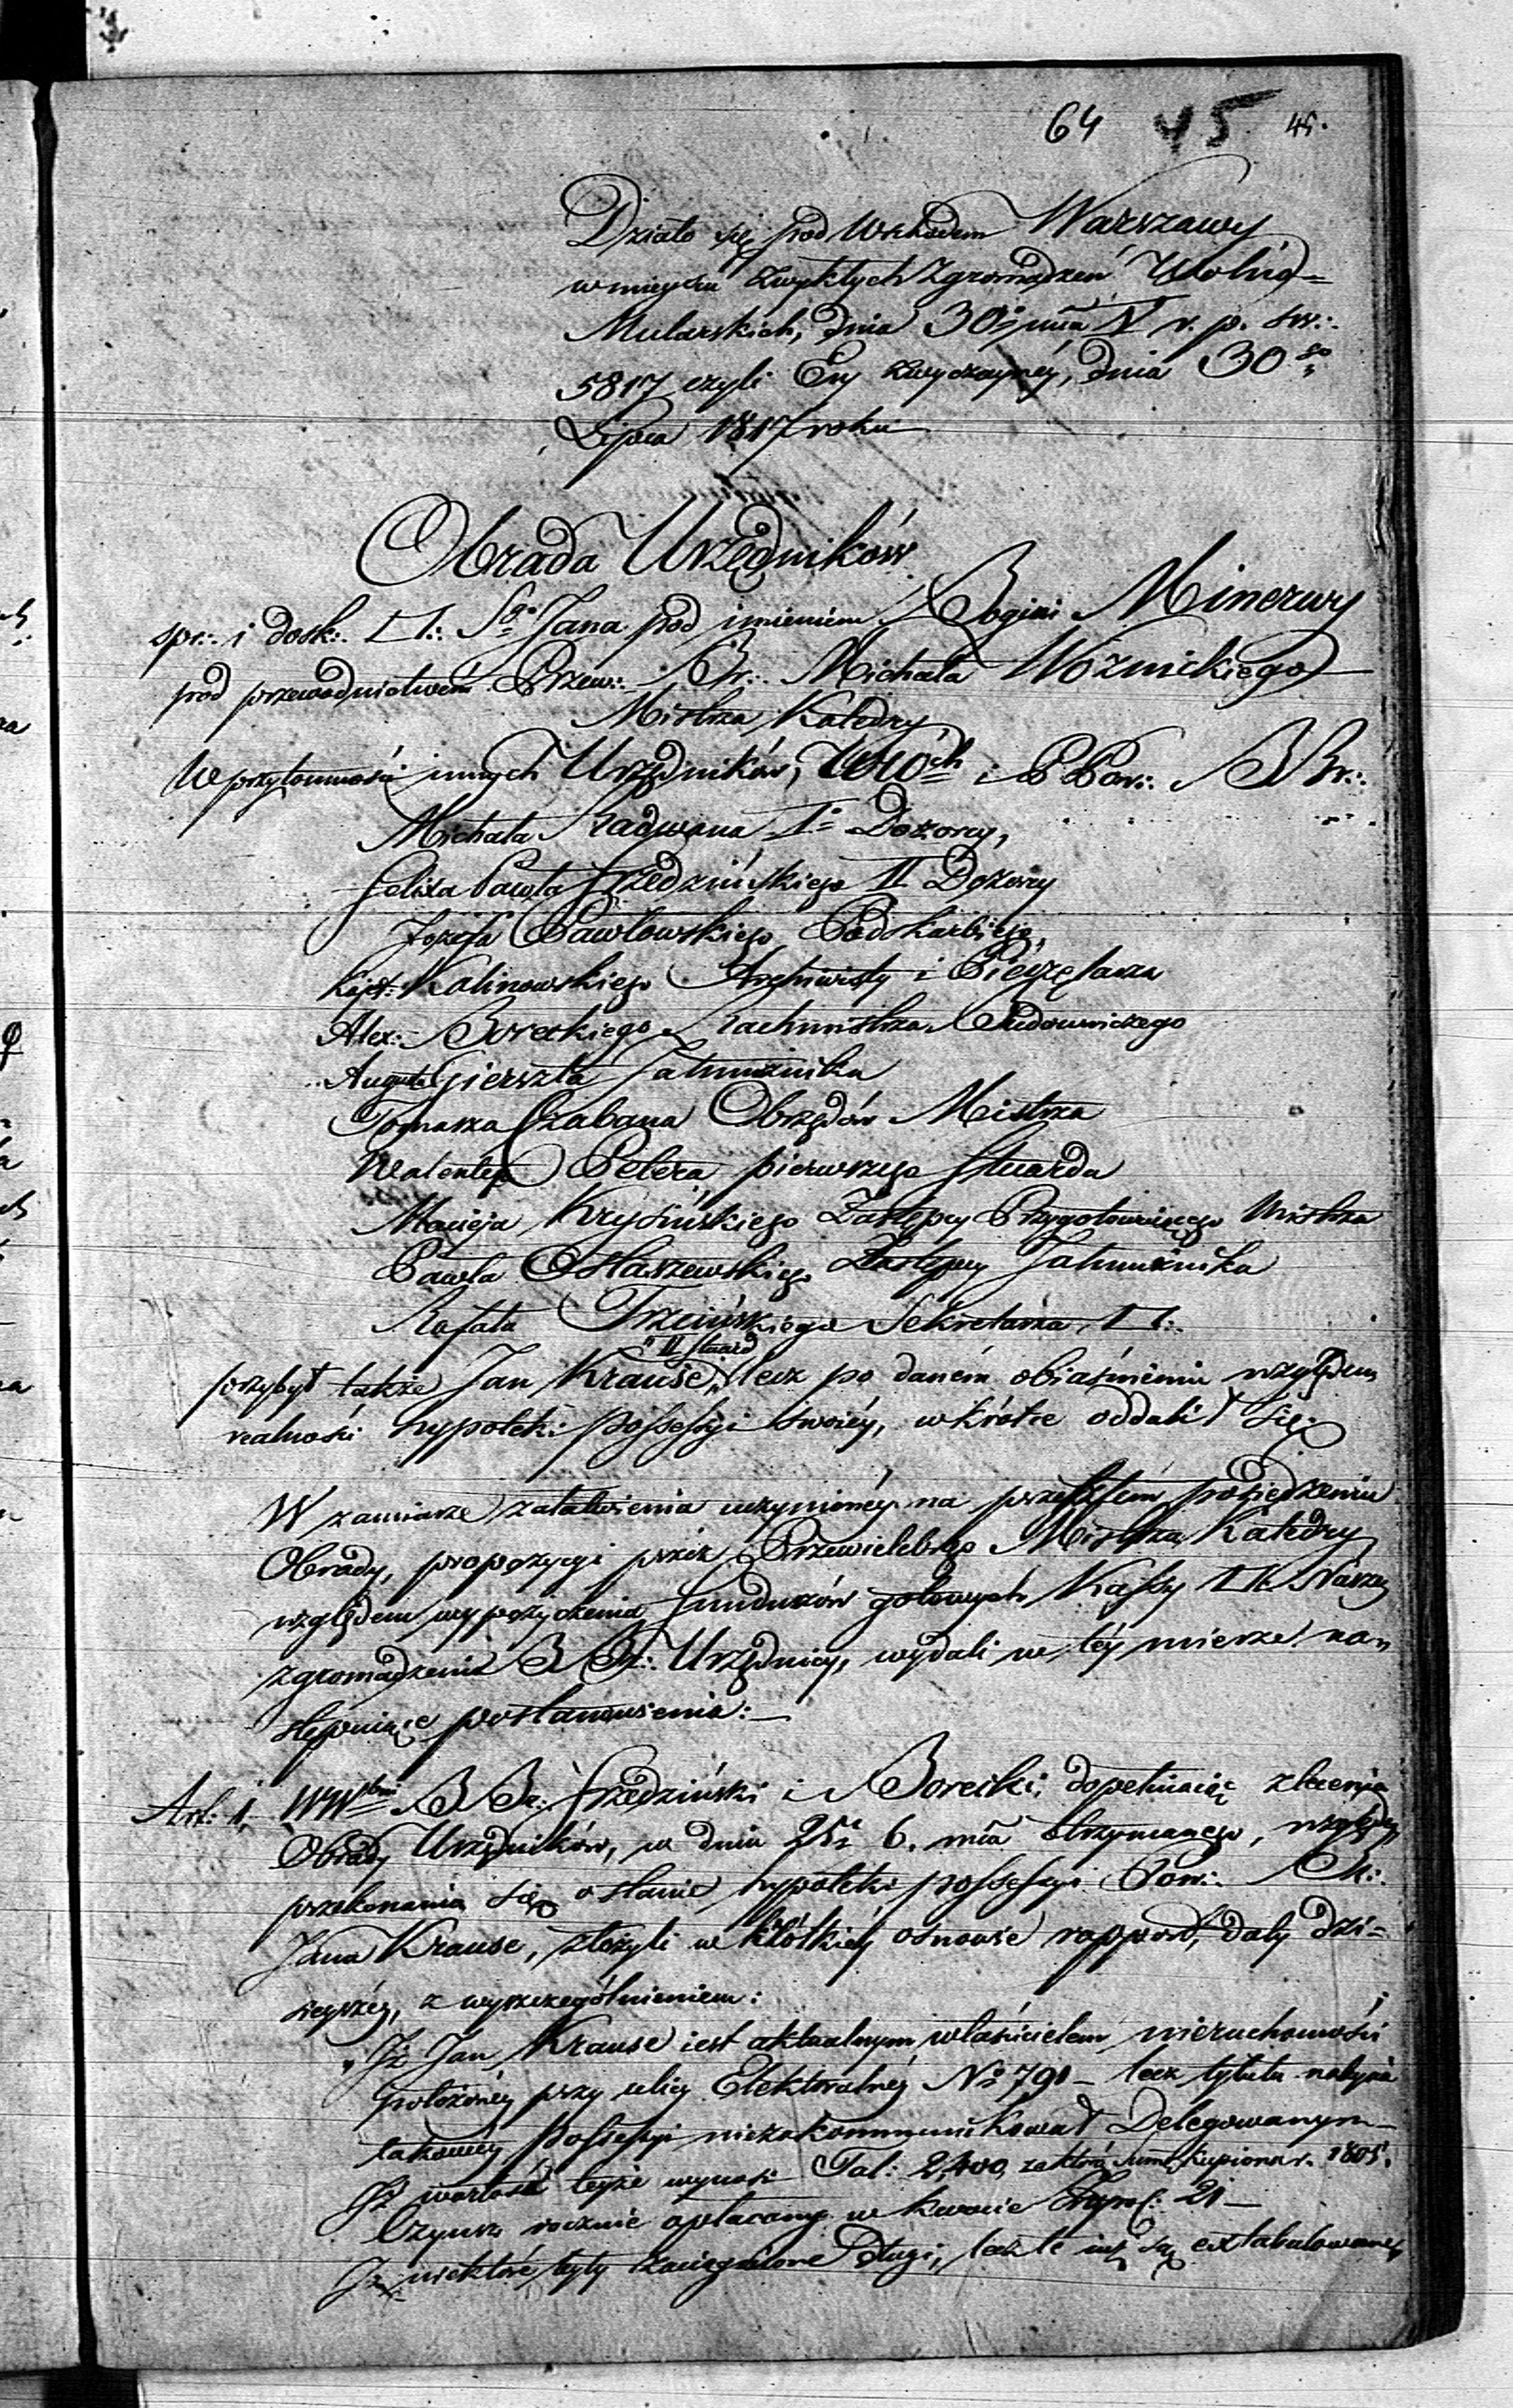 64 45 45.
Działo się pod Wschodem Warszawy
w mieyscu zwykłych Zgromadzeń Wolno=
Mularskich, dnia 30º mca V r. p. św.:.
5817 czyli Ery zwyczayney, dnia 30go
Lipca 1817 roku
Obrada Urzędników
spr:. i dosk:. □:. Sgo Jana pod imieniem Bogini Minerwy
pod przewodnictwem Przew:. Br:. Michała Woźnickiego
Mistrza Katedry
W przytomności innych Urzędników, i PPow:. BBr:.
Michała Radwana Iº Dozorcy,
Felixa Pawła Frzedzińskiego II Dozorcy
Józefa Pawłowskiego Podskarbiego,
Kajet: Kalinowskiego Archiwisty i Pieczętarza
Alex: Boreckiego Rachmistrza Budowniczego
August Gierszta Jałmużnika
Tomasza Czabana Obrzędów Mistrza
Walentego Petera pierwszego Stuarda
Macieja Krysińskiego Zastępcy Przygotowuiącego Mistrza
Pawła Ostaszewskiego Zastępcy Jałmużnika
Rafała Trzcińskiego Sekretarza □:.
II Stuard
przybył także Jan Krause, lecz po daném obiaśnieniu względem
realności hypoteki possessyi swoiéy, wkrótce oddalił się.
W zamiarze załatwienia uczynionéy na przeszłem posiedzeniu
Obrady, propozycyi przez Przewielebnego Mistrza Katedry
względem wypożyczenia funduszów gotowych Kassy □ Naszey
zgromadzeni BBr:. Urzędnicy, wydali w téy mierze na=
stępuiące postanowienia:—
Art: 1. WWbni BBr:. Frzedziński i Borecki, dopełniaiąc zlecenia
Obrady Urzędników, w dniu 25 b. mca otrzymanego, względem
przekonania się o stanie hypoteki possessyi Pow:. Br:.
Jana Krause, złożyli w krótkiéy osnowie rapport, daty dzi=
sieyszéy, z wyszczególnieniem:
„Iż Jan Krause iest aktualnym właścicielem nieruchomości
położonéy przy ulicy Elektoralnéy Nº 791 – lecz tytułu nabycia
takowéy Possessyi niezakommunikował Delegowanym—
Iż wartość teyże wynosi Tal: 2,400, za którą summę kupiona r. 1805.
Czynsz rocznie opłacany w kwocie Złpol: 21—
Iż niektóre były zaciągnione Długi, lecz te iuż są extabulowane,